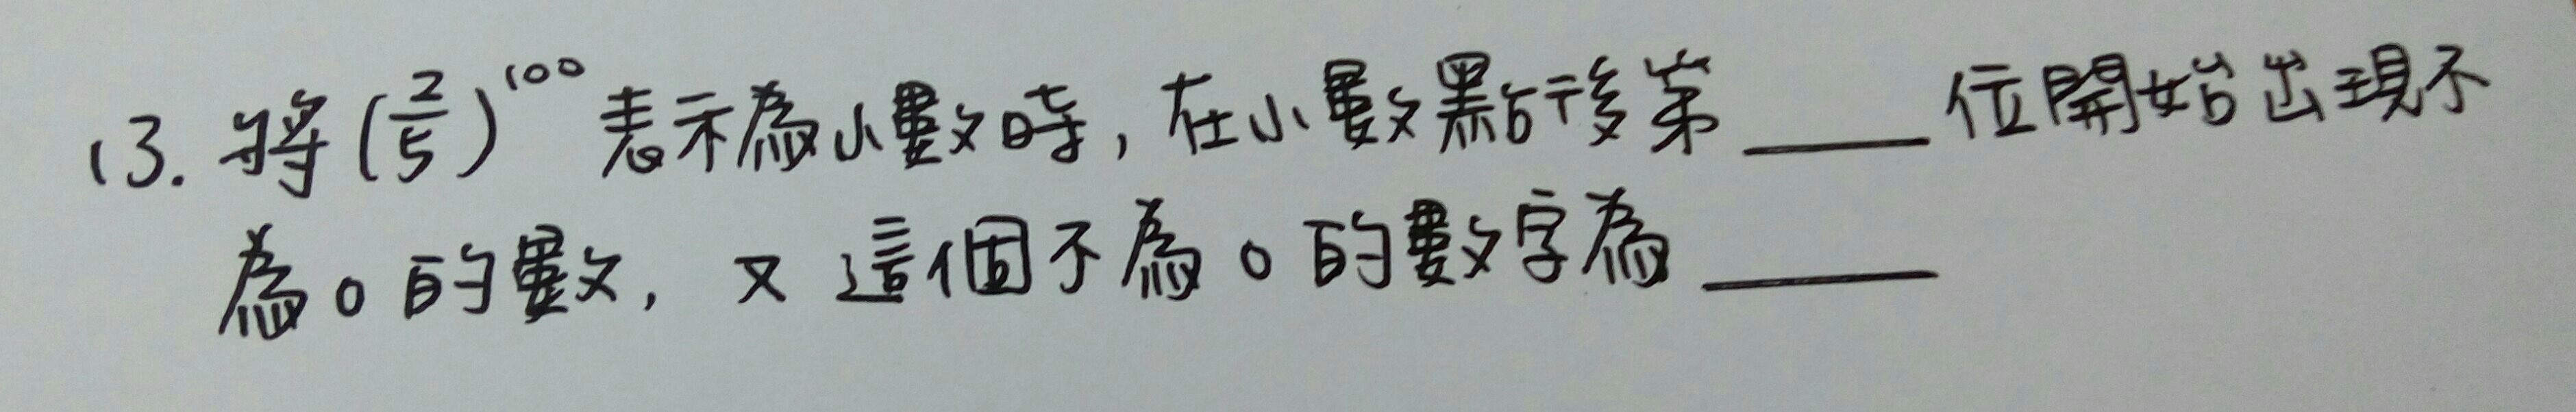 13. 將(2/5)^100 表示為小數時, 在小數點後第____位開始出現不
為0的數, 又這個不為0的數字為____